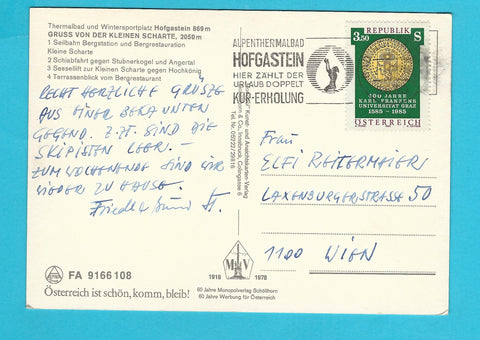 Thermalbad und Wintersportplatz Hofgastein 869 m
GRUSS VON DER KLEINEN SCHARTE, 2050 m
1 Seilbahn Bergstation und Bergrestauration
Kleine Scharte
2 Schiabfahrt gegen Stubnerkogel und Angertal
3 Sessellift zur Scharte gegen Hochkönig
4 Terrassenblick vom Bergrestaurant
RECHT HERZLICHE GRÜSSE
AUS EINER BEKANNTEN
GEGEND. Z.ZT. SIND DIE
SKIPISTEN LEER. –
ZUM WOCHENENDE SIND WIR
WIEDER ZU HAUSE.
FA 9166108
Österreich ist schön, komm, bleib!
Kunst- und Ansichtskarten-Verlag
& Co., Innsbruck,
Tel. Nr. 05222/29816
1918
MV
1978
60 Jahre Monopolverlag Schöllhorn
60 Jahre Werbung für Österreich
ALPENTHERMALBAD
HOFGASTEIN
HIER ZÄHLT DER
URLAUB DOPPELT
KUR-ERHOLUNG
REPUBLIK
3.50 S
400 JAHRE
KARL FRANZENS
UNIVERSITÄT GRAZ
1585-1985
ÖSTERREICH
Frau
ELFI REITERMEIER
LAXENBURGERSTRASSE 50
1100 WIEN